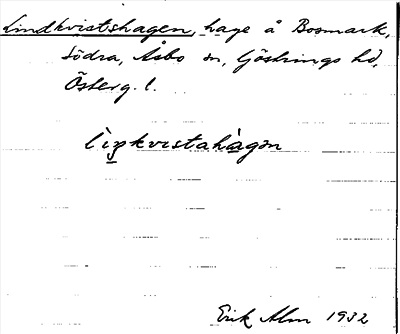 Lindkvistshagen, hage å Bosmark,
södra, Åsbo sn, Göstrings hd,
Österg. l.
lìŋkvistahàgən
Erik Alm 1932